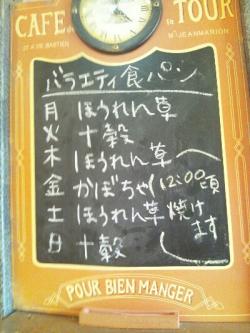 CAFE de la TOUR
ST A VIE BASTIEN
Mº JEANMARION
バラエティ食パン
月 ほうれん草
火 十穀
木 ほうれん草
金 かぼちゃ
土 ほうれん草
日 十穀
(12:00頃
焼け
ます
POUR BIEN MANGER